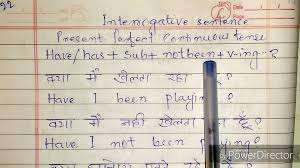 Interrogative sentence
Present perfect Continuous tense
Have/has + sub + not been + v-ing ?
क्या मैं खेलता रहा हूँ ?
Have I been playing ?
क्या मैं नहीं खेलता रहा हूँ ?
Have I not been playing ?
PowerDirector